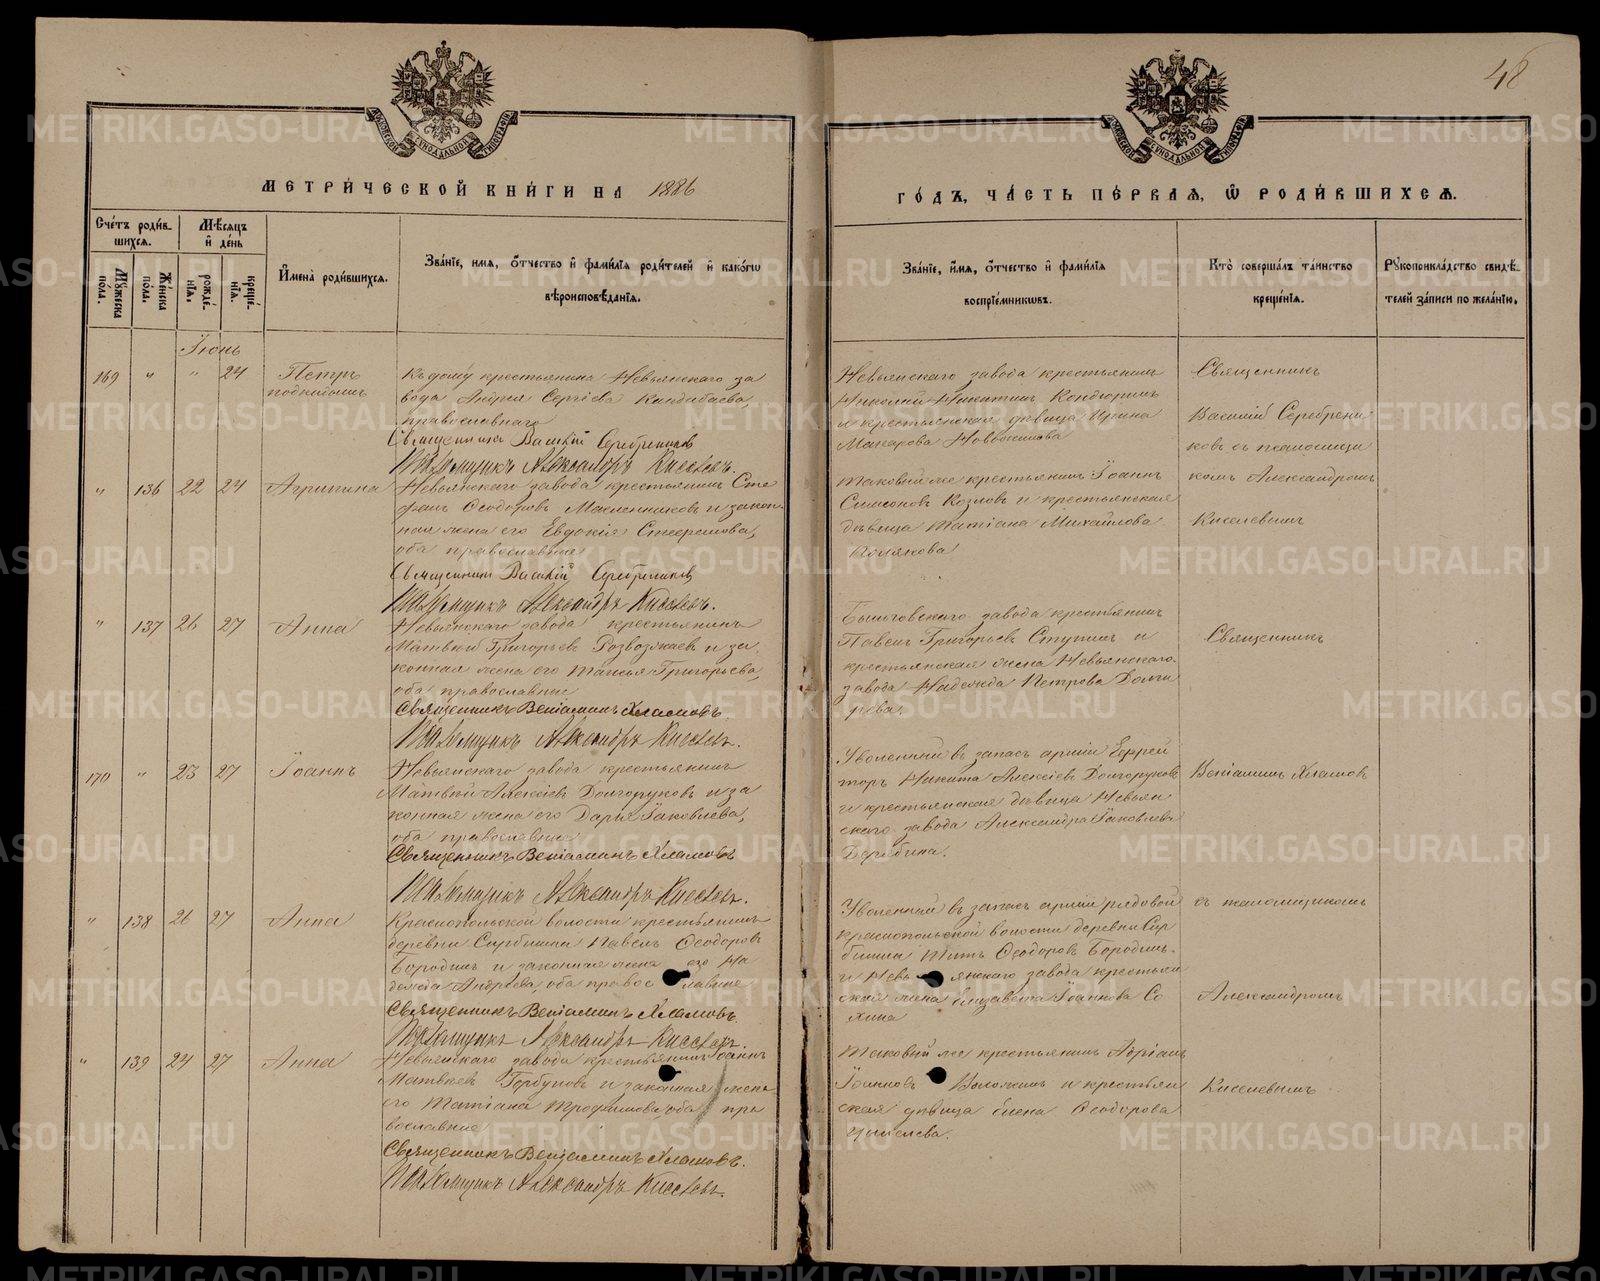 48
МЕТРИ́ЧЕСКОЙ КНИ́ГИ НА 1886
ГО́ДЪ, ЧА́СТЬ ПЕ́РВАЯ, Ѡ РОДИ́ВШИХСЯ.
Сче́тъ роди́в-
шихся.
Мѣ́сяцъ
и҆ де́нь
Му́жеска
пола.
Же́нска
пола.
рожде́-
нїя.
креще́-
нїя.
И҆мена̀ роди́вшихся.
Зва́нїе, имя, о҆́тчество и҆ фами́лїя роди́телей и҆ како́гѡ
вѣроисповѣ́данїя.
Зва́нїе, и҆́мя, о҆́тчество и҆ фами́лїя
воспрїе́мникѡвъ.
Кто̀ соверша́лъ та́инство
креще́нїя.
Рꙋкоприкла́дство свидѣ́-
телей за́писи по жела́нїю.
Іюнь
169 " " 24 Петръ
подкидышъ
Къ дому крестьянина Невьянскаго за
вода Андрея Сергѣева Кандабаева,
православнаго
Священникъ Василій Серебрениковъ
Псаломщикъ Александръ Киселевъ.
Невьянскаго завода крестьянинъ
Николай Никитинъ Кондюринъ
и крестьянская дѣвица Ирина
Макарова
Священникъ
Василій Серебрени
ковъ съ псаломщи
комъ Александромъ
Киселевымъ
" 136 22 24 Агрипина
Невьянскаго завода крестьянинъ Сте
фанъ Ѳеодоровъ Масленниковъ и закон
ная жена его Евдокія
оба православные
Священникъ Василій Серебрениковъ
Псаломщикъ Александръ Киселевъ.
Таковый же крестьянинъ Іоаннъ
Симоновъ Козловъ и крестьянская
дѣвица Татіана Михайлова
Полякова
" 137 26 27 Анна
Невьянскаго завода крестьянинъ
Матвѣй Григорьевъ Розвозжаевъ и за
конная жена его Таисья Григорьева,
оба православные
Священникъ Веніаминъ Хламовъ.
Псаломщикъ Александръ Киселевъ.
Быньговскаго завода крестьянинъ
Павелъ Григорьевъ Ступинъ и
крестьянская жена Невьянскаго
завода Надежда Петрова Долги
рева.
Священникъ
170 " 23 27 Іоаннъ
Невьянскаго завода крестьянинъ
Матвѣй Алексѣевъ Долгоруковъ и за
конная жена его Дарья Іаковлева,
оба православные
Священникъ Веніаминъ Хламовъ
Псаломщикъ Александръ Киселевъ.
Уволенный въ запасъ арміи Ефрей
торъ Никита Алексѣевъ Долгоруковъ
и крестьянская дѣвица Невьян
скаго завода Александра Іаковлева
Берябина.
Веніаминъ Хламовъ
" 138 26 27 Анна
Краснопольской волости крестьянинъ
деревни Сарбишна Павелъ Ѳеодоровъ
Бородинъ и законная жена его На
дежда Андреева, оба православные
Священникъ Веніаминъ Хламовъ.
Псаломщикъ Александръ Киселевъ.
Уволенный въ запасъ арміи рядовой
Краснопольской волости деревни Сар
бишна Титъ Ѳеодоровъ Бородинъ
и Невьянскаго завода крестьян
ская жена Елизавета Іоаннова Со
хина
съ псаломщикомъ
Александромъ
" 139 24 27 Анна
Невьянскаго завода крестьянинъ Іоаннъ
Матвѣевъ Горбуновъ и законная жена
его Татіана Трофимова, оба пра
вославные
Священникъ Веніаминъ Хламовъ.
Псаломщикъ Александръ Киселевъ.
Таковый же крестьянинъ Адріанъ
Іоанновъ Воложинъ и крестьян
ская дѣвица Елена Ѳеодорова
Киселевымъ
METRIKI.GASO-URAL.RU